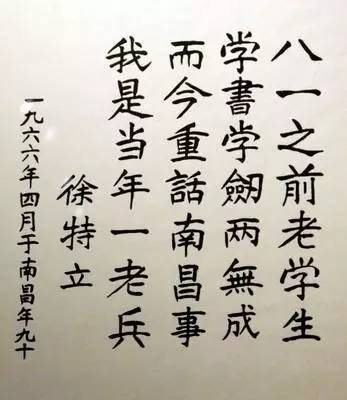 八一之前老学生
学書学劒两無成
而今重話南昌事
我是当年一老兵
徐特立
一九六六年四月于南昌年九十